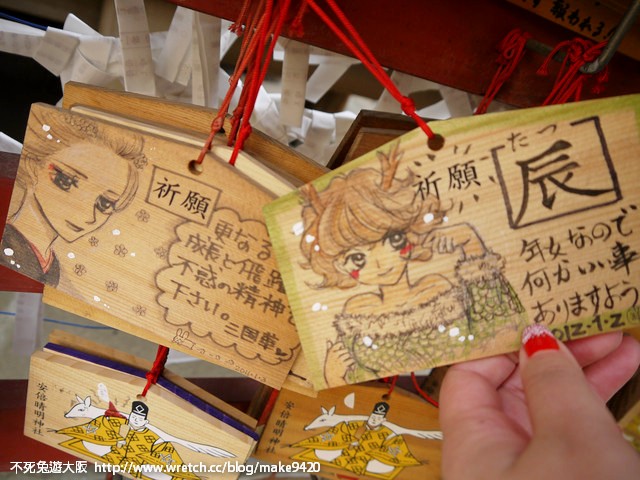 献われる
祈願
更なる
成長と飛躍
不惑の精神を
下さい。三国華
祈願
たつ
辰
年女なので
何かいい事
ありますよう
2012-1-2
安倍晴明神社
安倍晴明神社
不死兔遊大阪 http://www.wretch.cc/blog/make9420